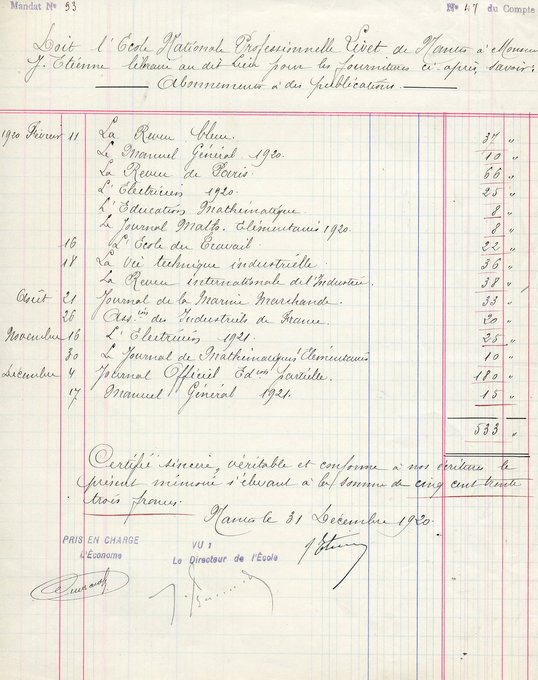 Mandat No 93
No 47 du Compte
Doit l'Ecole Nationale Professionnelle Livet de Nantes à Monsieur
J. Etienne libraire au dit lieu pour les fournitures ci-après, savoir:
Abonnements à des publications.
1920 Février 11 La Revue bleue. 37 "
Le Manuel Général 1920. 10 "
La Revue de Paris 66 "
L'Electricien 1920. 25 "
L'Education Mathématique 8 "
Le Journal Math. Elémentaires 1920. 8 "
16 L'Ecole du Travail 22 "
18 La Vie technique industrielle. 36 "
La Revue internationale de l'Industrie. 38 "
Août 21 Journal de la Marine Marchande. 33 "
26 Asson des Industriels de France. 20 "
Novembre 16 L'Electricien 1921. 25 "
30 Le Journal de Mathématiques Elémentaires 10 "
Décembre 4 Journal Officiel Edon partielle. 180 "
17 Manuel Général 1921. 15 "
533 "
Certifié sincère, véritable et conforme à nos écritures le
présent mémoire s'élevant à la somme de cinq cent trente
trois francs.
Nantes le 31 Décembre 1920.
PRIS EN CHARGE
L'Économe
VU :
Le Directeur de l'École
J Etienne